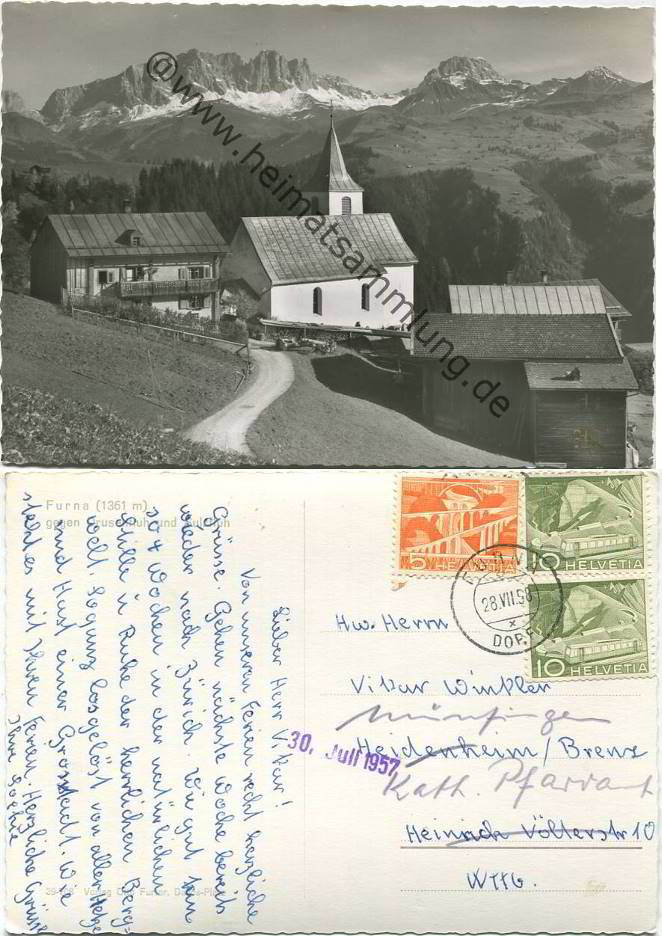 @www.heimatsammlung.de
Furna (1361 m)
gegen Drusenfluh und Sulzfluh
Lieber Herr Vikar!
Von unseren Ferien recht herzliche
Grüsse. Gehen nächste Woche bereits
wieder nach Zürich. Wie gut tun
3-4 Wochen in der natürlichen
Stille u. Ruhe der herrlichen Berg=
welt. So ganz losgelöst von aller Hetze
und Hast einer Grosstadt. Wie
steht es mit Ihren Ferien. Herzliche Grüsse
Ihre
5 HELVETIA
10 HELVETIA
10 HELVETIA
28.VII.56
DORF
30. Juli 1957
Hw. Herrn
Vikar Winkler
Münsingen
Heidenheim/Brenz
Kath. Pfarramt
Heinrich Völterstr 10
Wttb.